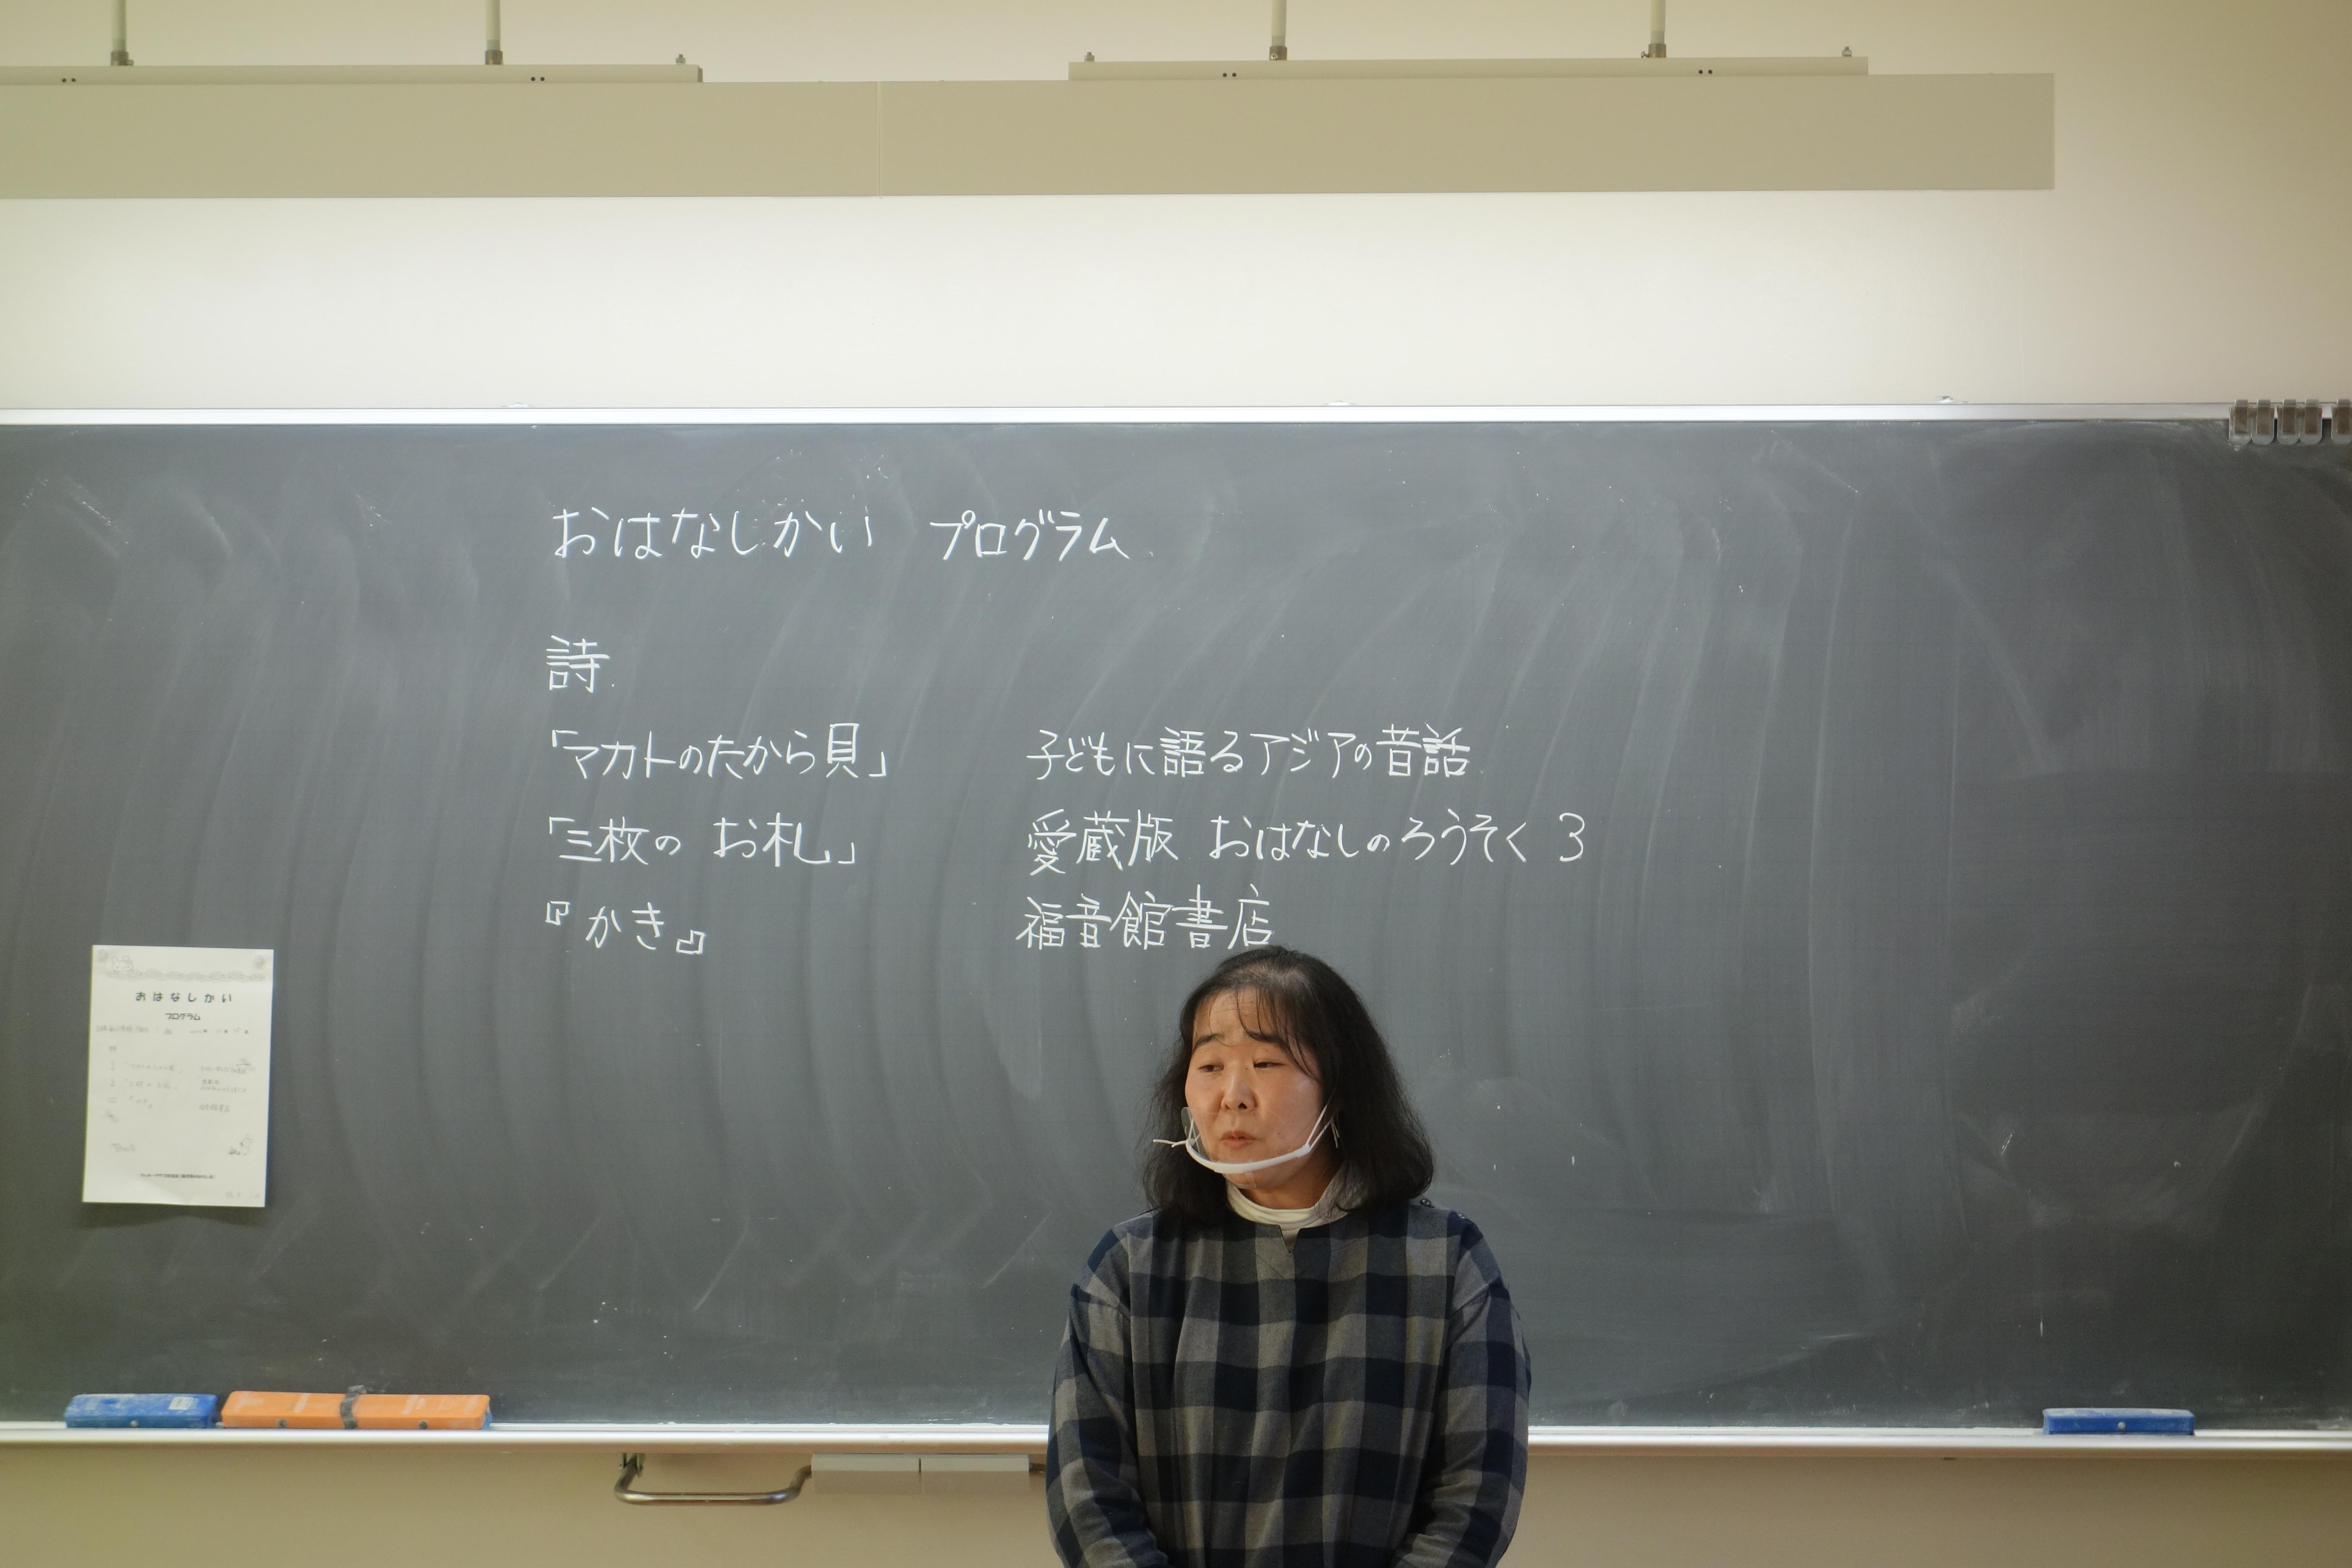 おはなしかい プログラム
詩
「マカトのたから貝」 子どもに語るアジアの昔話
「三枚の お札」 愛蔵版 おはなしのろうそく 3
『かき』 福音館書店
おはなしかい
プログラム